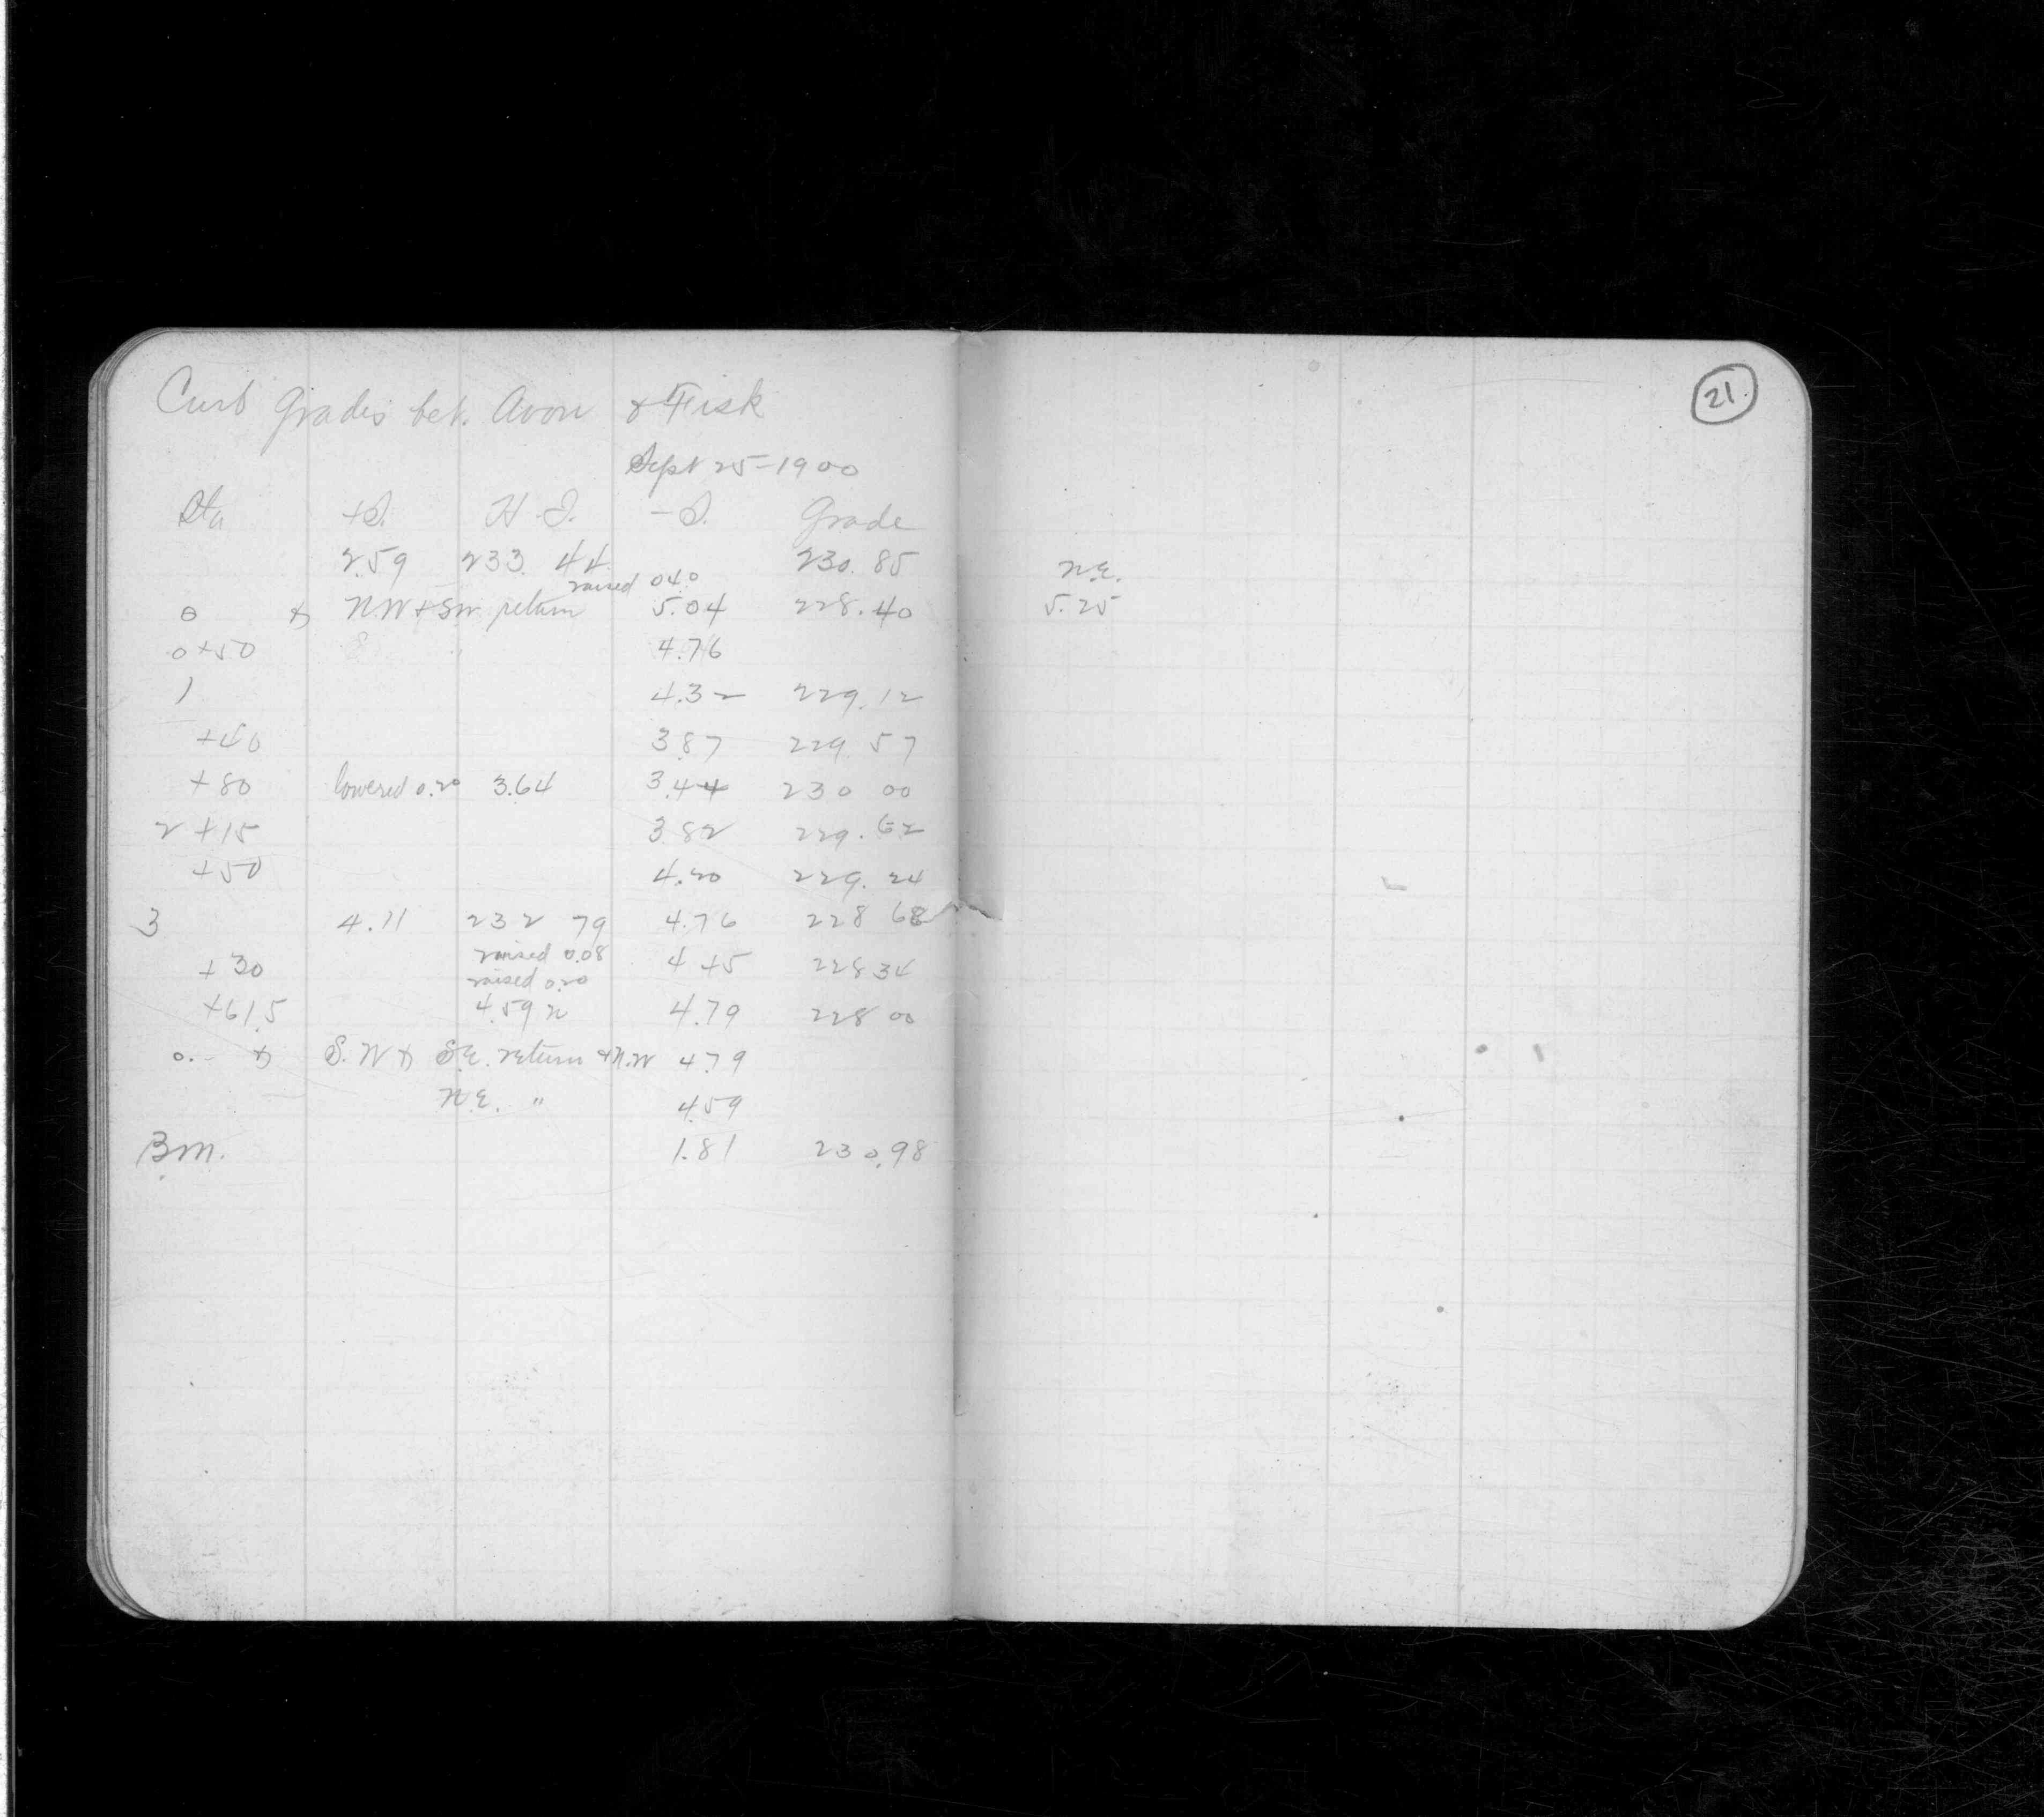 Curb grades bet. Avon & Fisk
21
Sept 25-1900
Sta +S. H.I. -S. Grade
2.59 233.44 230.85
raised 0.40 N.E.
0 & N.W + SW. return 5.04 228.40 5.25
0+50 4.76
1 4.32 229.12
+40 3.87 229.57
+80 lowered 0.20 3.64 3.44 230 00
2 +15 3.82 229.62
+50 4.20 229.24
3 4.11 232 79 4.76 228 68
raised 0.08
+30 4 45 228 34
raised 0.20
+61.5 4.59 4.79 228 00
0. & S.W & S.E. return & N.W 4.79
N.E. " 4.59
B.M. 1.81 230.98